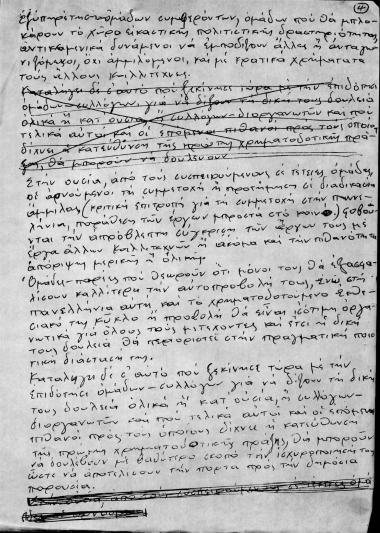 4
εξυπηρέτησης ομάδων συμφερόντων, ομάδων που θα μπλο-
κάρουν το χώρο εικαστικής, πολιτιστικής δραστηριότητας
ανταγωνιστικά δυνάμενοι να εμποδίζουν άλλες ή ανταγω-
νιζόμενοι, όχι αμιλλόμενοι, και με κρατικά χρήματα
τους άλλους καλλιτέχνες.
Καταλήγει δε σ' αυτό που ξεκίνησε τώρα με την επιδότηση
ομάδων-συλλόγων για να δείξουν τη δική τους δουλειά
ολικά ή κατ' ουσίαν, συλλόγων-διοργανωτών και που
τελικά αυτοί και οι επόμενοι πιθανοί προς τους οποίους
δείχνει η κατεύθυνση της πρώτης χρηματοδοτικής πρά-
ξης, θα μπορούν να δουλεύουν
Στην ουσία, από τους συσπειρωμένους σε τέτοιες ομάδες,
οι αρνούμενοι τη συμμετοχή ή προτίμηση σε διαδικασία
άμιλλας (κριτική επιτροπή για τη συμμετοχή στην Πανελ-
λήνια, παράθεση των έργων μπροστά στο κοινό) φοβού-
νται την απρόβλεπτη σύγκριση των έργων τους με
έργα άλλων καλλιτεχνών ή ακόμα και την πιθανότητα
απόρριψη μερική ή ολική.
Ομάδες-παρέες που θεωρούν ότι μόνοι τους θα εξασφα-
λίσουν καλλίτερα την αυτοπροβολή τους, ενώ στη
πανελλήνια αυτή και το χρηματοδοτούμενο εκθε-
σιακό της κύκλο η προβολή θα είναι ισότιμη οργα-
νωτικά για όλους τους μετέχοντες και έτσι η δική
τους δουλειά θα περιοριστεί στην πραγματική ποιο-
τική διάσταση της.
Καταλήγει δε σ' αυτό που ξεκίνησε τώρα με την
επιδότηση ομάδων-συλλόγων για να δείξουν τη δική
τους δουλειά ολικά ή κατ' ουσία, ή συλλόγων-
διοργανωτών και που τελικά αυτοί και οι επόμενοι
πιθανοί προς τους οποίους δείχνει η κατεύθυνση
της πρώτης χρηματοδοτικής πράξης, θα μπορούν
να δουλεύουν με βαθύτερο σκοπό την ισχυροποίηση τους
ώστε να αποτελέσουν την πόρτα προς την δημόσια
παρουσία.